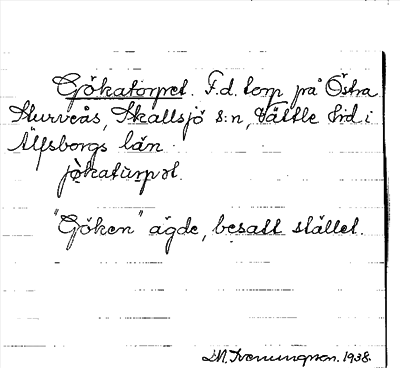 Gökatorpet. F.d. torp på Östra
Sturveås, Skallsjö s:n, Vättle hd i
Älfsborgs län.
jökatùrpət.
"Göken" ägde, besatt stället.
1938.